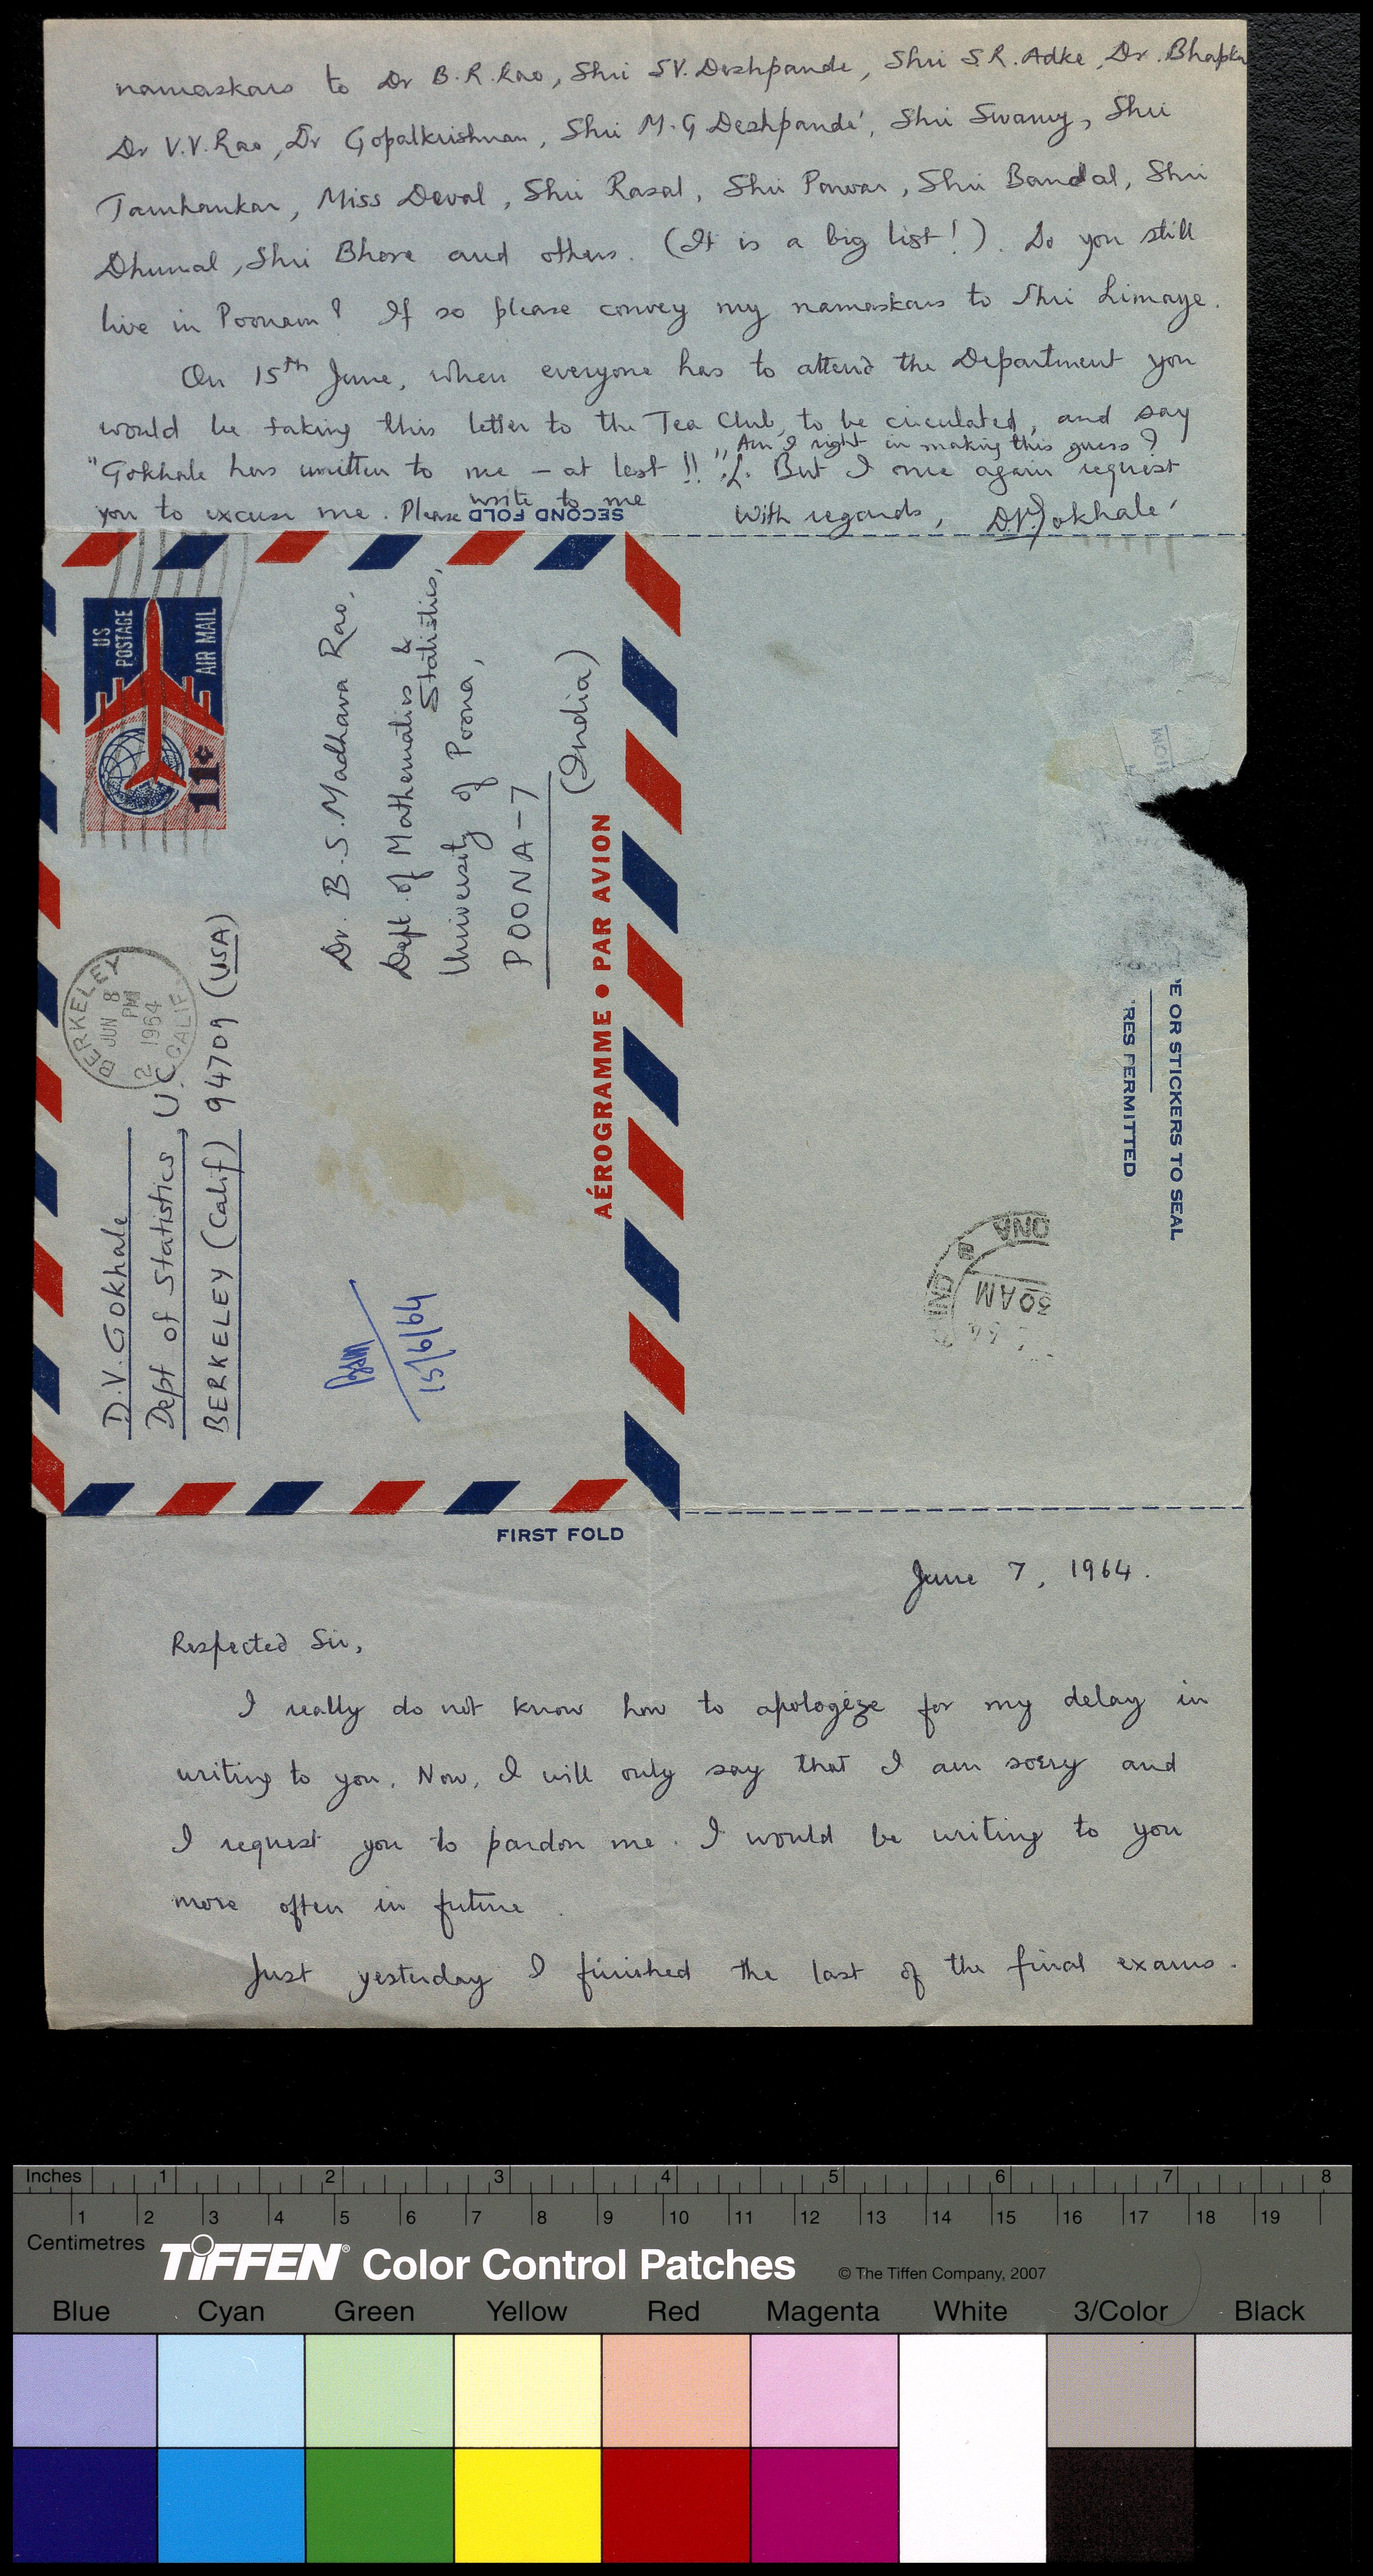 namaskars to Dr B.R.Rao, Shri S.V. Deshpande, Shri S.R. Adke, Dr. Bhapkar
Dr V.V. Rao, Dr Gopalkrishnan, Shri M.G Deshpande, Shri Swamy, Shri
Tamhankar, Miss Deval, Shri Rasal, Shri Pawar, Shri Bandal, Shri
Dhumal, Shri Bhore and others. (It is a big list!). Do you still
live in Poonam? If so please convey my namaskars to Shri Limaye.
On 15th June, when everyone has to attend the Department you
would be taking this letter to the Tea Club, to be circulated, and say
"Gokhale has written to me – at last!!" Am I right in making this guess? But I once again request
you to excuse me. Please write to me
With regards, DVGokhale
SECOND FOLD
US
POSTAGE
AIR MAIL
11¢
BERKELEY
JUN 8
PM
1964
CALIF
D.V. Gokhale
Dept of Statistics, U.C.
BERKELEY (Calif) 94709 (USA)
Dr. B.S. Madhava Rao,
Dept. of Mathematics &
Statistics,
University of Poona,
POONA-7
(India)
AÉROGRAMME • PAR AVION
BSM
15/6/64
'E OR STICKERS TO SEAL
'RES PERMITTED
ONA
30 AM
FIRST FOLD
June 7, 1964.
Respected Sir,
I really do not know how to apologize for my delay in
writing to you. Now, I will only say that I am sorry and
I request you to pardon me. I would be writing to you
more often in future.
Just yesterday I finished the last of the final exams.
Inches 1 2 3 4 5 6 7 8
1 2 3 4 5 6 7 8 9 10 11 12 13 14 15 16 17 18 19
Centimetres
TIFFEN® Color Control Patches © The Tiffen Company, 2007
Blue Cyan Green Yellow Red Magenta White 3/Color Black